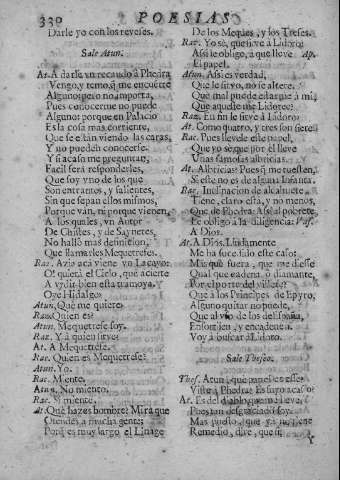 330 POESIAS
Darle yo con los reveses.
Sale Atun.
At. A darle un recaudo à Phedra
Vengo, y temo, si me encuentre
Alguno; pero no importa,
Pues conocerme no puede
Alguno: porque en Palacio
Es la cosa mas corriente,
Que se estàn viendo las caras,
Y no pueden conocerse.
Y si acaso me preguntan,
Facil serà responderles,
Que soy uno de los que
Son entrantes, y salientes,
Sin que sepan ellos mismos,
Porque vàn, ni porque vienen,
A los quales, un Autor
De Chistes, y de Saynetes,
No hallò mas definicion,
Que llamarles Mequetrefes.
Rac. Azia acà viene un Lacayo:
O! quiera el Cielo, que acierte
A urdir bien esta tramoya.
Oye Hidalgo?
Atun. Què me quiere?
Rac. Quien es?
Atun. Mequetrefe soy.
Rac. Y à quien sirve?
At. A Mequetrefe.
Rac. Quien es Mequetrefe?
Atun. Yo.
Rac. Miente.
Atun. No miento.
Rac. Si miente.
At. Què hazes hombre? Mira que
Ofendes à mucha gente;
Porque es muy largo el Linage
De los Meques, y los Trefes.
Rac. Yo sè, que sirve à Lidoro:
Assi le obligo, à que lleve Ap.
El papel.
Atun. Assi es verdad,
Que le sirvo, no se altere.
Què mal puede estarme à mi,
Que aquesse me Lidoree?
Rac. En fin le sirve à Lidoro?
At. Como quatro, y tres son siete.
Rac. Pues llevele este papel,
Que yo segure por èl lleve
Unas famosas albricias.
At. Albricias? Pues què me ruesten,
Si este no es de alguna Infanta.
Rac. Inclinacion de alcahuete
Tiene, claro està, y no menos,
Que de Phedra: Assi al pobrete
Le obligo à la diligencia: Vase.
A Dios.
At. A Dios. Lindamente
Me ha sucedido este caso:
Mas què fuera, que me diesse
Qual que cadena, ò diamante,
Por el porte del villete?
A los Principes de Epyro,
Alguno quitar no puede,
Que al uso de los de España,
Ensortijen, y encadenen.
Voy à buscar à Lidoro.
Sale Theseo.
Thes. Atun, què papel es esse?
Viste à Phedra? Es suyo acaso?
At. Es del diablo, que me lleve,
Pues tan desgraciado soy.
Mas puesto, que ya no tiene
Remedio, dire, que si,